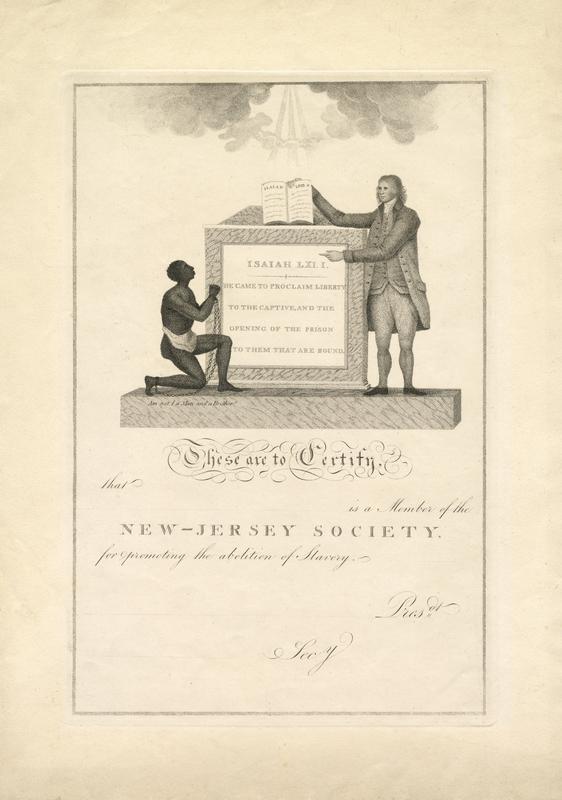 ISAIAH
LXI. I.
ISAIAH LXI. I.
HE CAME TO PROCLAIM LIBERTY
TO THE CAPTIVE, AND THE
OPENING OF THE PRISON
TO THEM THAT ARE BOUND.
Am not I a Man and a Brother
These are to Certify.
that
is a Member of the
NEW-JERSEY SOCIETY.
for promoting the abolition of Slavery.
Presdt
Secy